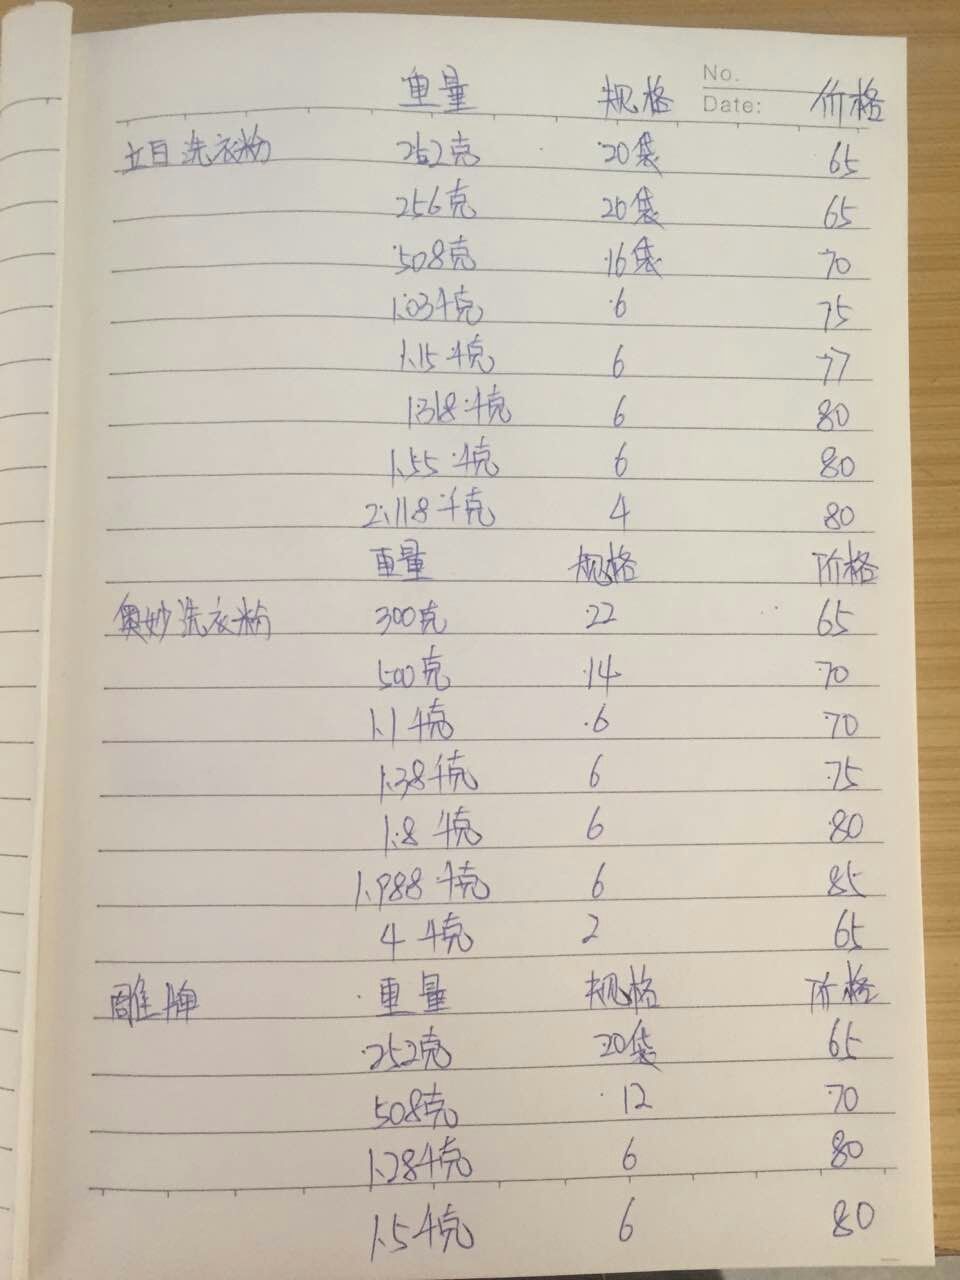 No.
Date:
重量 规格 价格
立白洗衣粉 252克 20袋 65
256克 20袋 65
508克 16袋 70
1.03千克 6 75
1.15千克 6 77
1.318千克 6 80
1.55千克 6 80
2.118千克 4 80
重量 规格 价格
奥妙洗衣粉 300克 22 65
500克 14 70
1.1千克 6 70
1.38千克 6 75
1.8千克 6 80
1.988千克 6 85
4千克 2 65
雕牌 重量 规格 价格
252克 20袋 65
508克 12 70
1.28千克 6 80
1.5千克 6 80